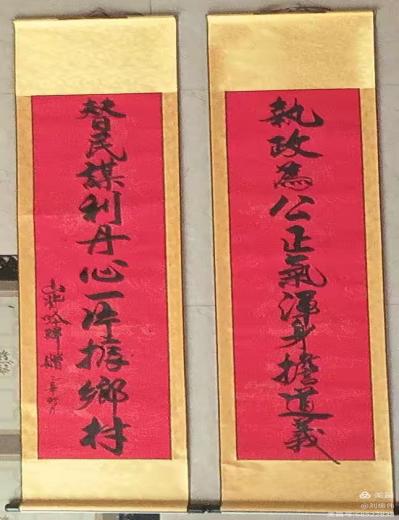 執政為公正氣渾身擔道義
替民謀利丹心一片鄉村
美篇